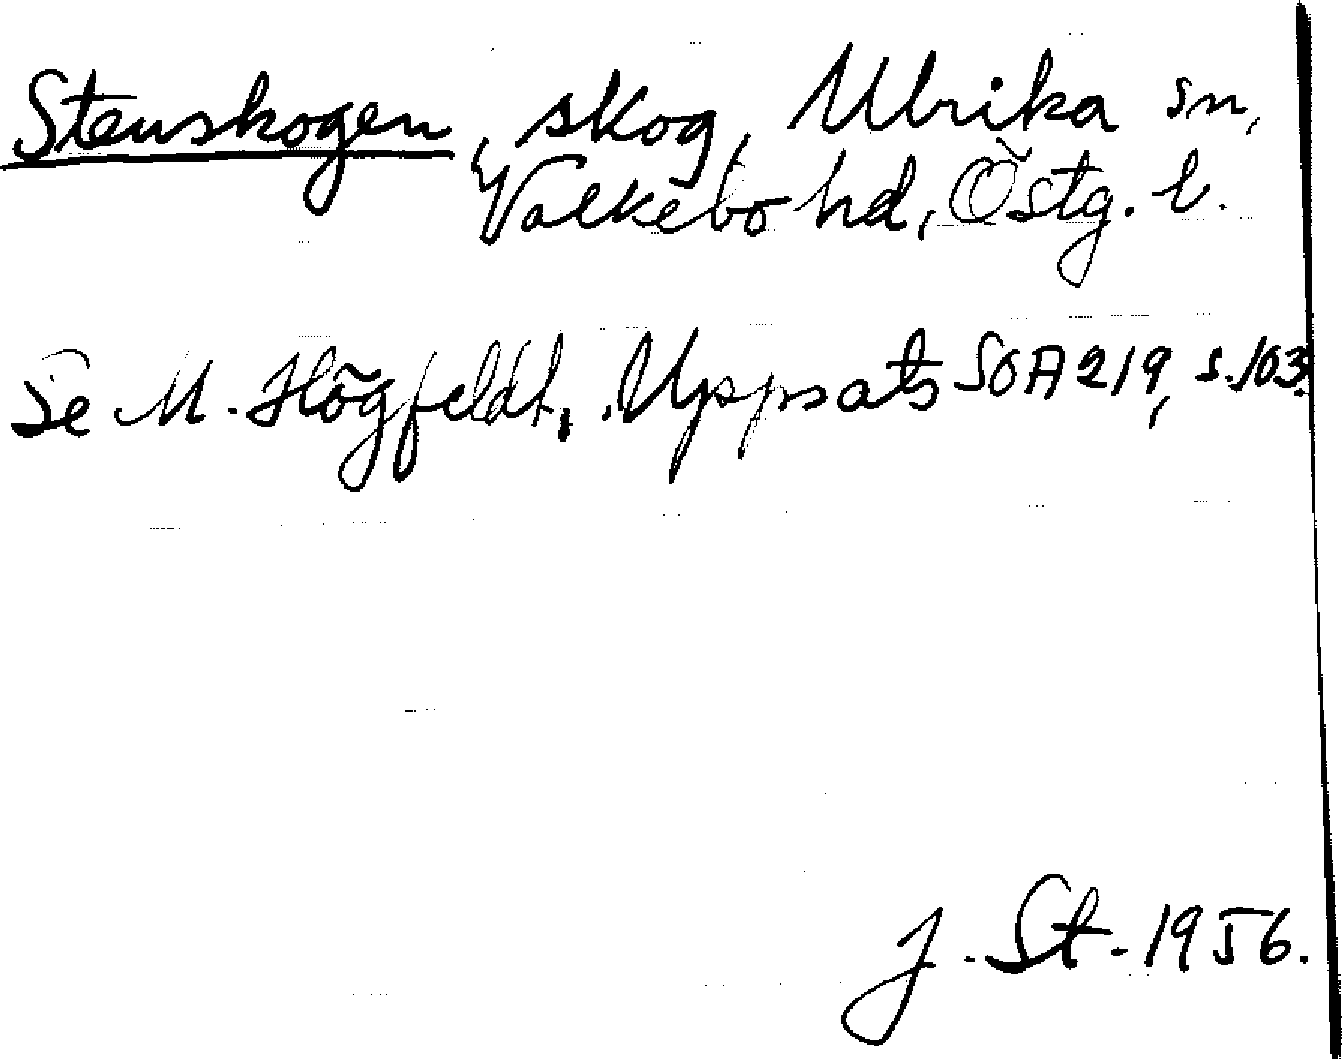 Stenskogen, skog, Ulrika sn,
Valkebo hd, Östg. l.
Se M. Högfeldt, Uppsats SOA 219, s. 103.
J. St. 1956.